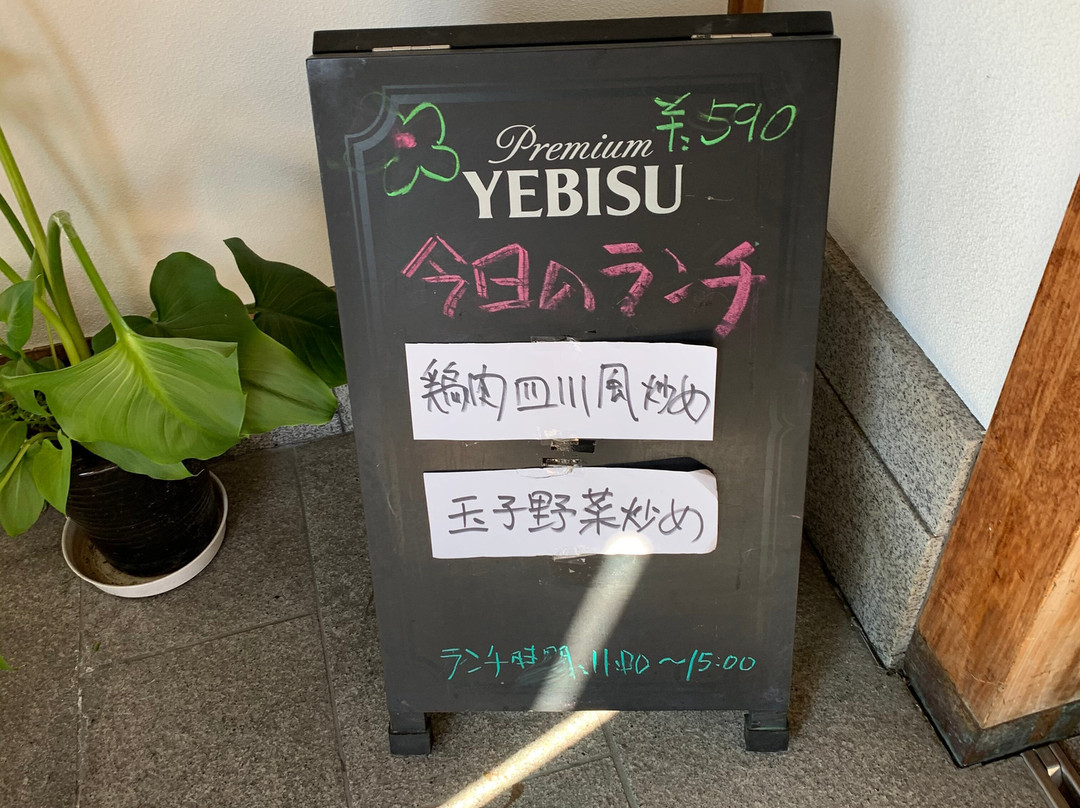 ¥590
Premium
YEBISU
今日のランチ
鶏肉四川風炒め
玉子野菜炒め
ランチ時間:11:30～15:00